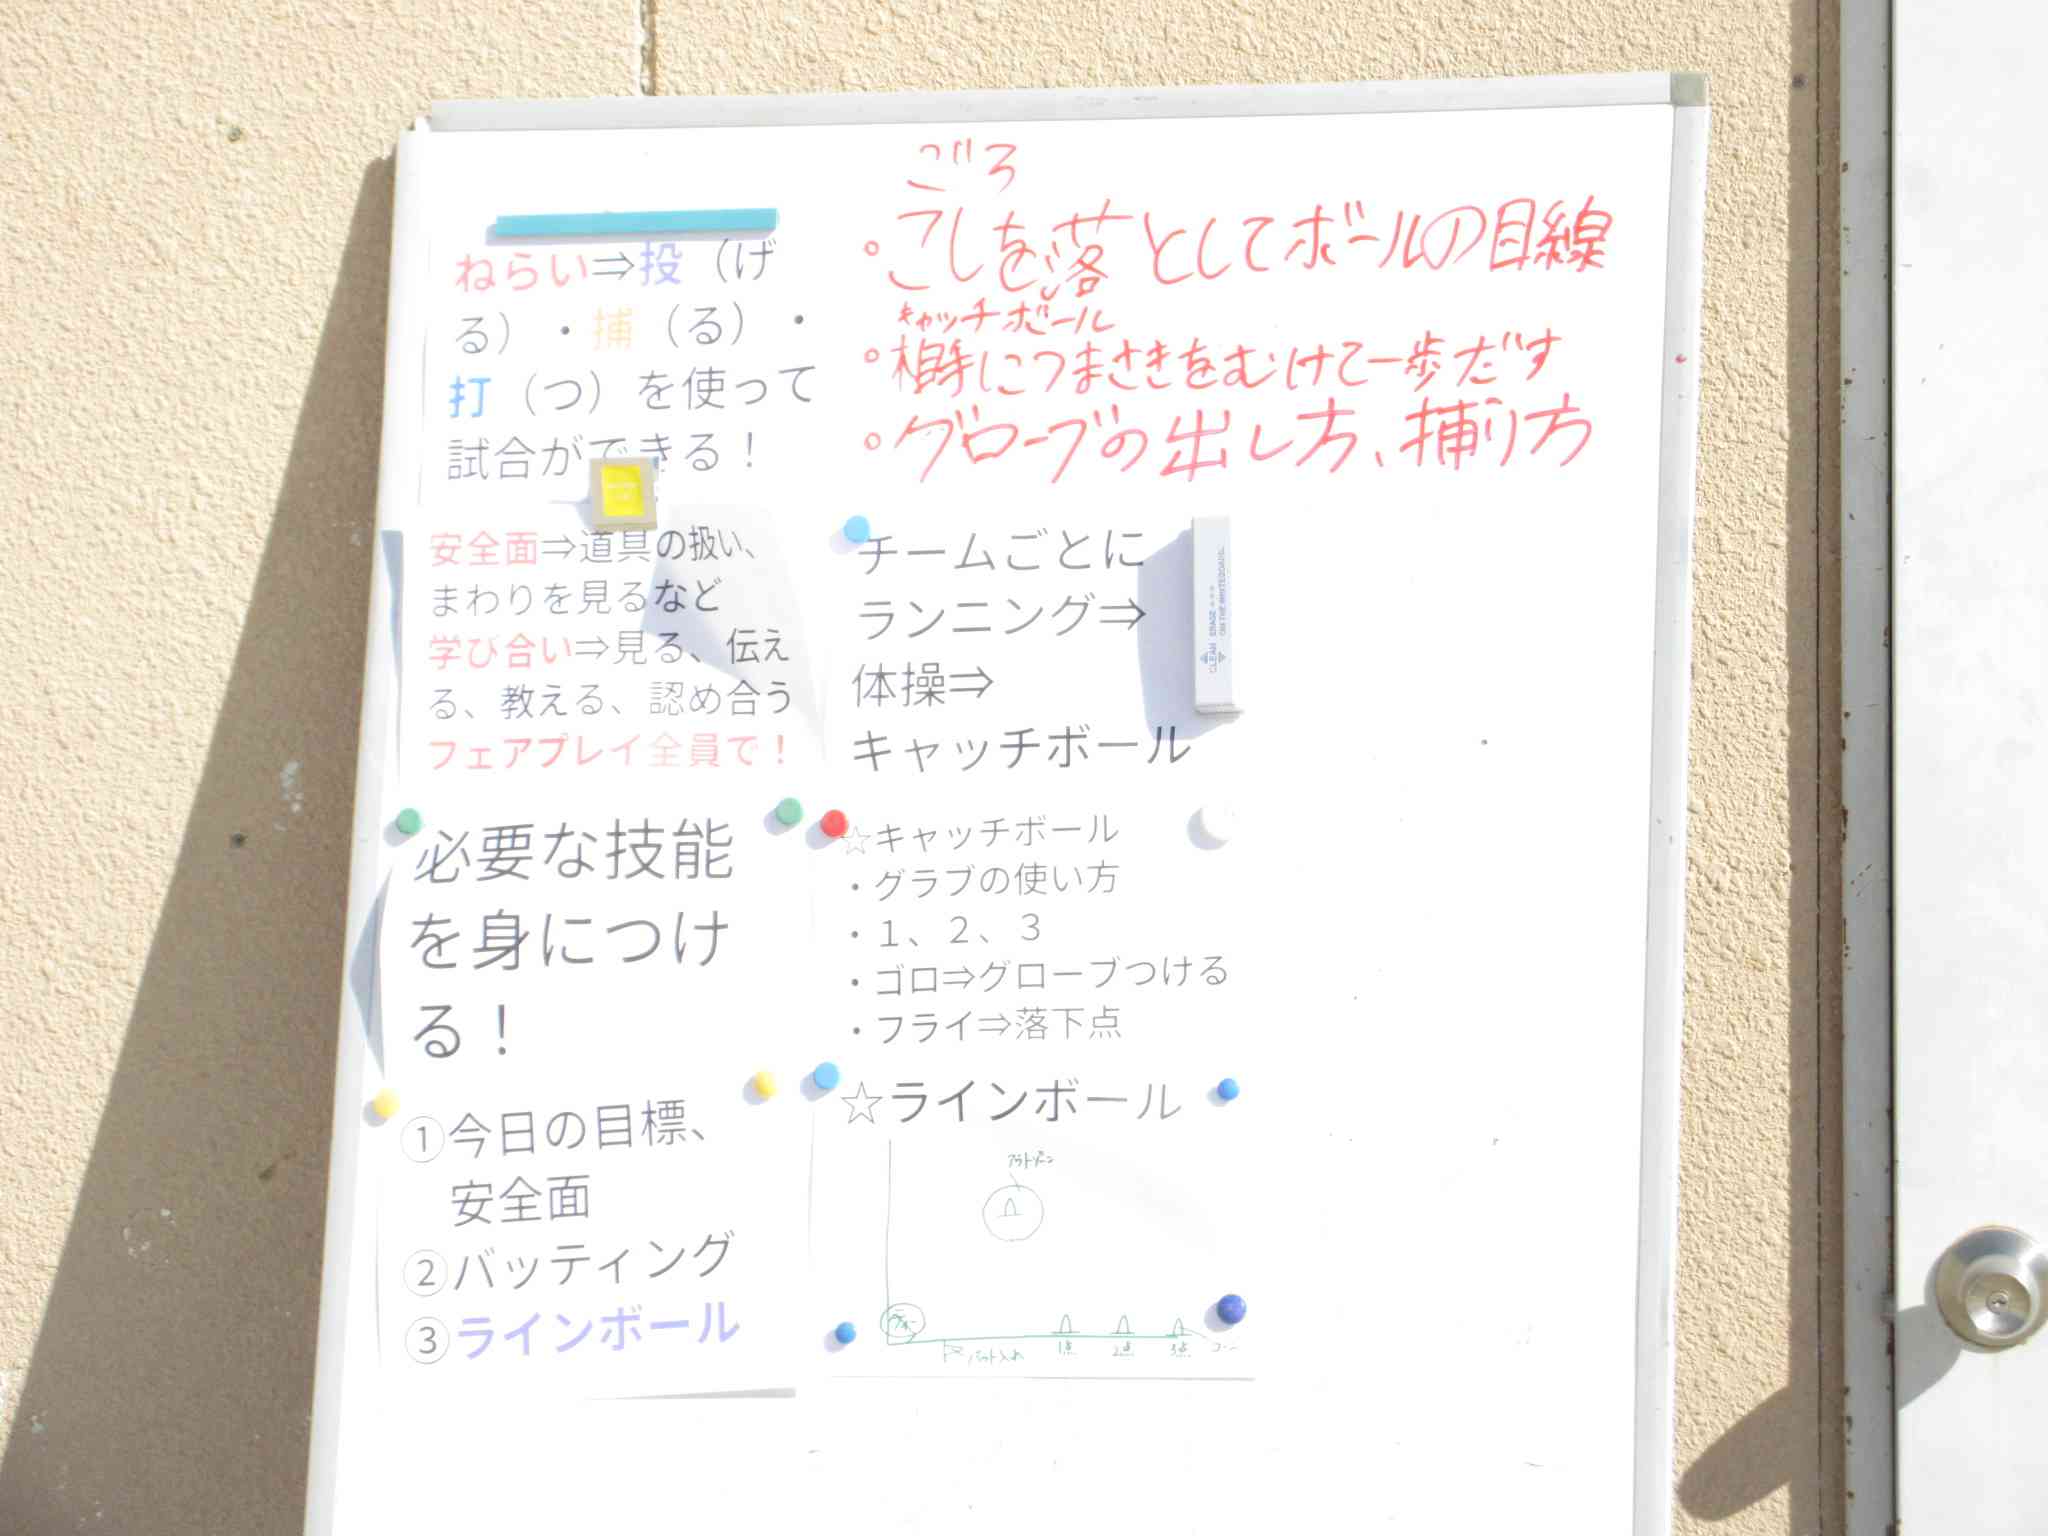 ねらい⇒投（げ
る）・捕（る）・
打（つ）を使って
試合ができる！
安全面⇒道具の扱い、
まわりを見るなど
学び合い⇒見る、伝え
る、教える、認め合う
フェアプレイ全員で！
必要な技能
を身につけ
る！
①今日の目標、
安全面
②バッティング
③ラインボール
ごろ
・こしを落としてボールの目線
キャッチボール
・相手につまさきをむけて一歩だす
・グローブの出し方、捕り方
チームごとに
ランニング⇒
体操⇒
キャッチボール
CLEAN ERASE
ON THE WHITEBOARD
☆キャッチボール
・グラブの使い方
・１、２、３
・ゴロ⇒グローブつける
・フライ⇒落下点
☆ラインボール
アウトゾーン
バット入れ
1点
2点
3点